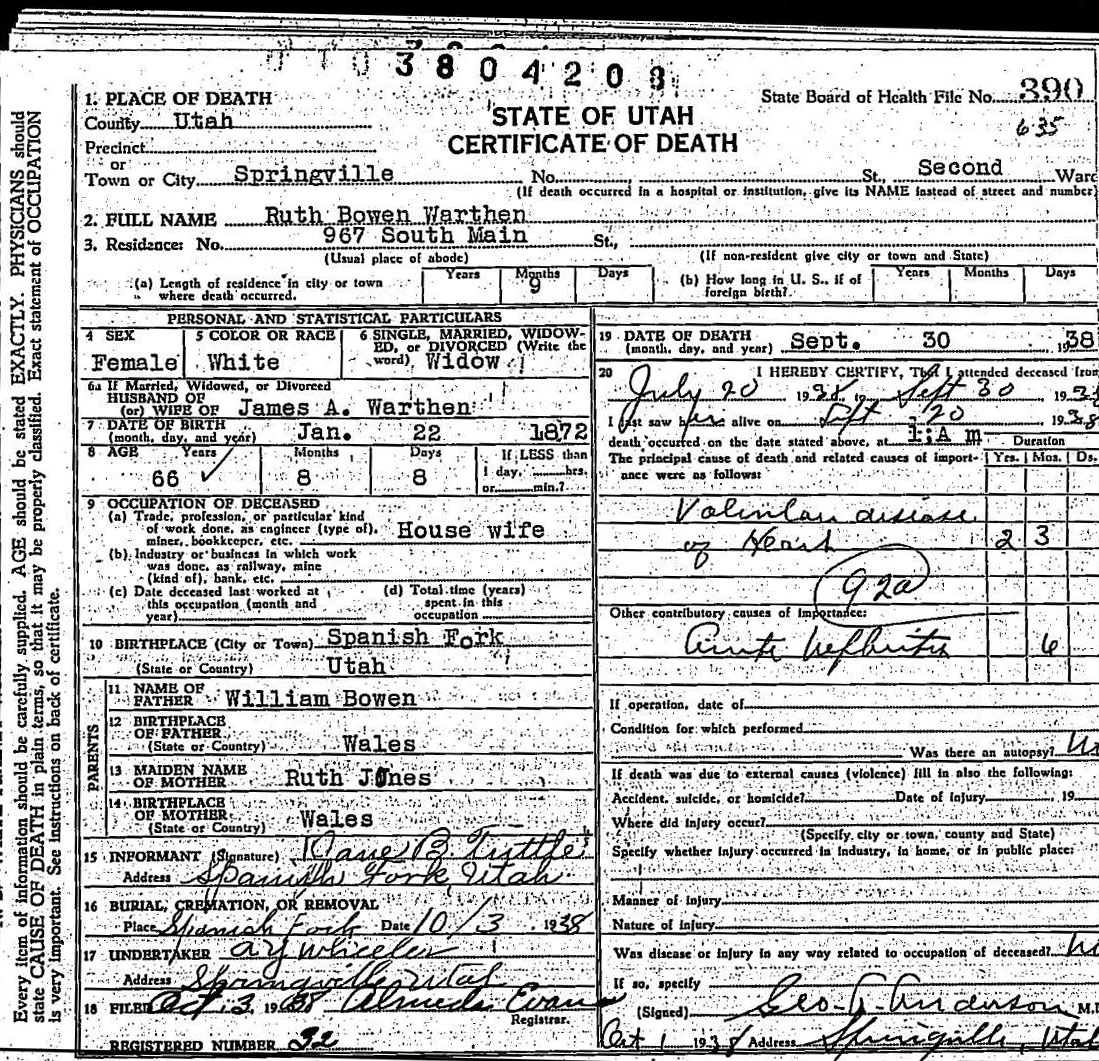 3804208
State Board of Health File No. 390
635
STATE OF UTAH
CERTIFICATE OF DEATH
1. PLACE OF DEATH
County Utah
Precinct
or
Town or City Springville No. St., Second Ward
(If death occurred in a hospital or institution, give its NAME instead of street and number)
2. FULL NAME Ruth Bowen Warthen
3. Residence: No. 967 South Main St.,
(Usual place of abode) (If non-resident give city or town and State)
(a) Length of residence in city or town where death occurred. Years Months 9 Days
(b) How long in U. S., if of foreign birth? Years Months Days
PERSONAL AND STATISTICAL PARTICULARS
4 SEX Female
5 COLOR OR RACE White
6 SINGLE, MARRIED, WIDOWED, OR DIVORCED (Write the word) Widow
6a If Married, Widowed, or Divorced
HUSBAND OF
(or) WIFE OF James A. Warthen
7 DATE OF BIRTH
(month, day, and year) Jan. 22 1872
8 AGE Years 66 Months 8 Days 8
If LESS than 1 day, hrs. or min.?
9 OCCUPATION OF DECEASED
(a) Trade, profession, or particular kind
of work done, as engineer (type of),
miner, bookkeeper, etc. House wife
(b) Industry or business in which work
was done, as railway, mine
(kind of), bank, etc.
(c) Date deceased last worked at
this occupation (month and
year)
(d) Total time (years)
spent in this
occupation
10 BIRTHPLACE (City or Town) Spanish Fork
(State or Country) Utah
PARENTS
11 NAME OF
FATHER William Bowen
12 BIRTHPLACE
OF FATHER
(State or Country) Wales
13 MAIDEN NAME
OF MOTHER Ruth Jones
14 BIRTHPLACE
OF MOTHER
(State or Country) Wales
15 INFORMANT (Signature) B. Tuttle
Address Spanish Fork, Utah
16 BURIAL, CREMATION, OR REMOVAL
Place Spanish Fork Date 10/3 1938
17 UNDERTAKER A Y Wheeler
Address Springville Utah
18 FILED Oct. 3, 1938 Almeda Evans
Registrar.
REGISTERED NUMBER 32
19 DATE OF DEATH
(month, day, and year) Sept. 30 1938
20 I HEREBY CERTIFY, That I attended deceased from
July 20 1938, to Sept 30 1938
I last saw her alive on Sept 20 1938
death occurred on the date stated above, at 1:A m
Duration
The principal cause of death and related causes of importance were as follows: Yrs. Mos. Ds.
Valvular disease
of Heart 2 3
92a
Other contributory causes of importance:
Acute Nephritis 6
If operation, date of
Condition for which performed
Was there an autopsy? No
If death was due to external causes (violence) fill in also the following:
Accident, suicide, or homicide? Date of injury , 19
Where did injury occur?
(Specify city or town, county and State)
Specify whether injury occurred in industry, in home, or in public place:
Manner of injury
Nature of injury
Was disease or injury in any way related to occupation of deceased? No
If so, specify
(Signed) Geo. A. Anderson M.D.
Oct 1 1938 Address Springville, Utah
Every item of information should be carefully supplied. AGE should be stated EXACTLY. PHYSICIANS should
state CAUSE OF DEATH in plain terms, so that it may be properly classified. Exact statement of OCCUPATION
is very important. See instructions on back of certificate.